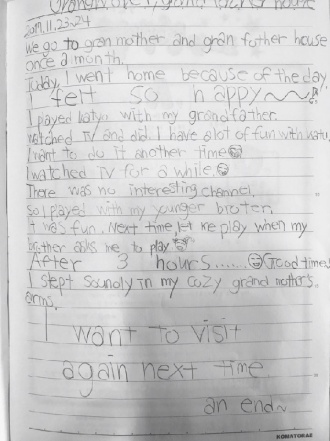 Grandmother, grand father house
2019.11.23-24
We go to gran mother and gran futher house
once a month.
Today, I went home because of the day,
I felt so happy~~~
I played katyu with my grandfather.
watched TV and did. I have alot of fun with katu,
I want to do it another time
I watched TV for a while.
There was no interesting channel,
So I played with my younger broter,
It was fun. Next time, let me play when my
brother asks me to play
After 3 hours...... Good times
I slept soundly in my cozy grand mother's
arms.
I want to visit
again next time
an end~
KOMATORAE